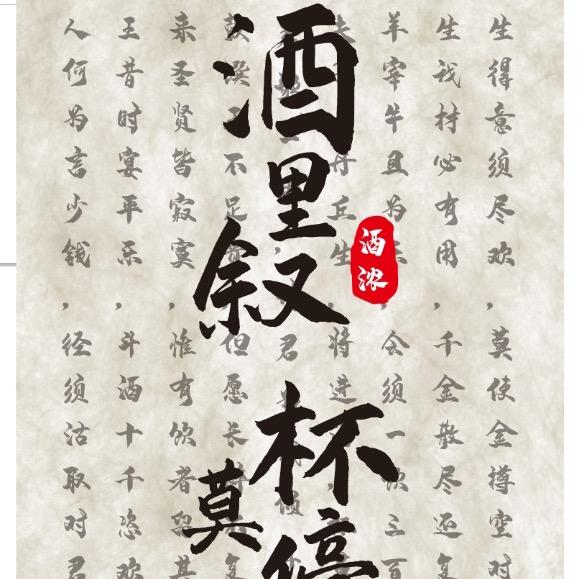 酒里叙
杯莫停
酒浓
生得意须尽欢，莫使金樽空对
生我持必有用，千金散尽还复
羊宰牛且为乐，会须一饮三百
丘生，将进
君
馔不足，但愿长
来圣贤皆寂寞，惟有饮者留其
王昔时宴平乐，斗酒十千恣欢
人何为言少钱，经须沽取对君